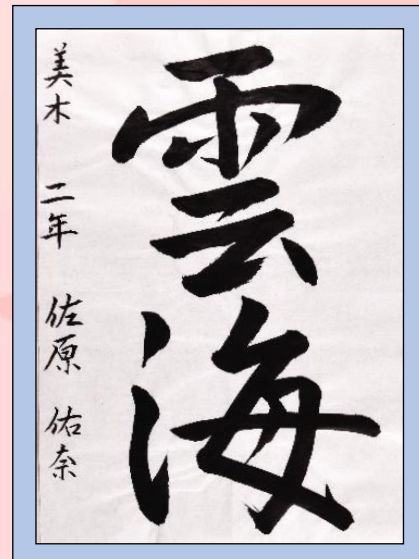 雲海
美木 二年 佐原 佑奈